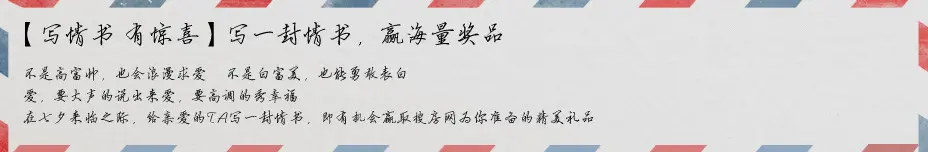 【写情书 有惊喜】写一封情书，赢海量奖品
不是高富帅，也会浪漫求爱　不是白富美，也能勇敢表白
爱，要大声的说出来爱，要高调的秀幸福
在七夕来临之际，给亲爱的TA写一封情书，即有机会赢取搜房网为你准备的精美礼品